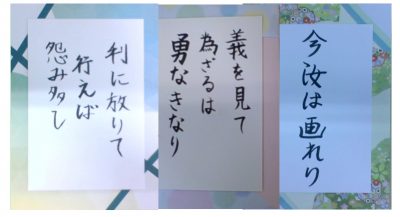 今汝は画れり
義を見て
為ざるは
勇なきなり
利に放りて
行えば
怨み多し